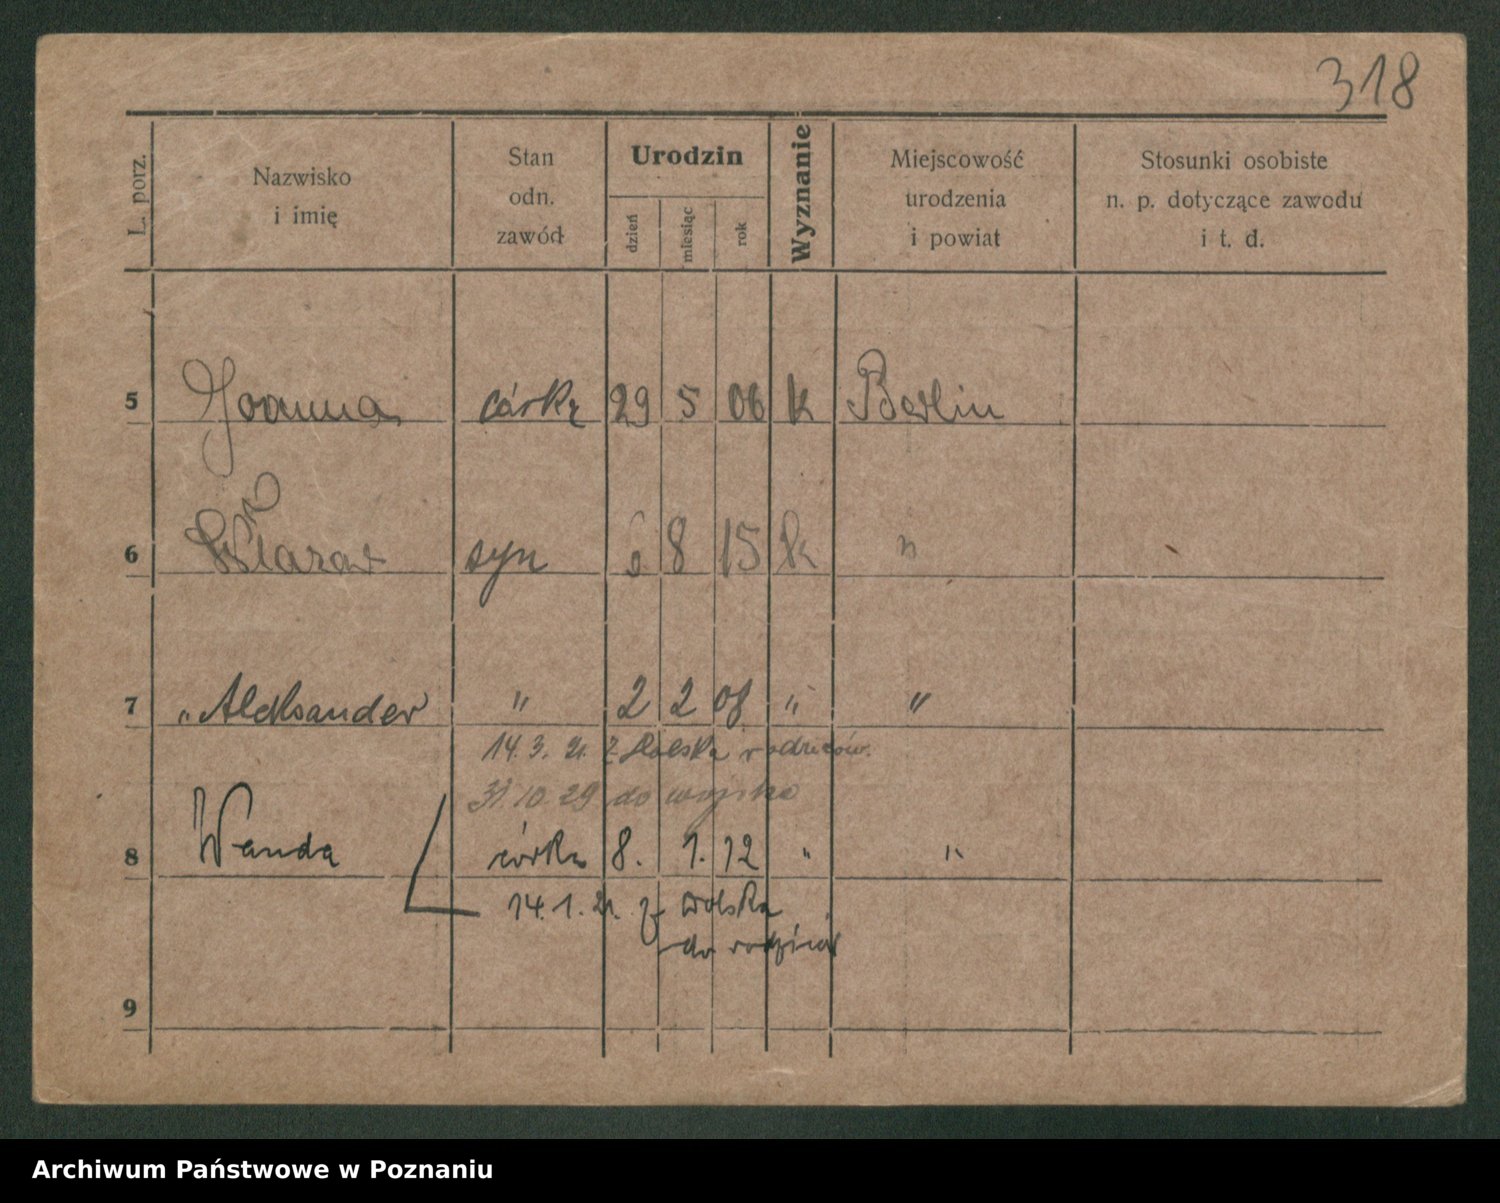 318
L. porz.
Nazwisko
i imię
Stan
odn.
zawód
Urodzin
dzień
miesiąc
rok
Wyznanie
Miejscowość
urodzenia
i powiat
Stosunki osobiste
n. p. dotyczące zawodu
i t. d.
5 Joanna córka 29 5 06 k Berlin
6 syn 8 15 k "
7 " Aleksander " 2 2 08 " "
14. 3. 21. z rodziców.
31. 10. 29 do wojska
8 Wanda córka 8. 1. 12 " "
14. 1. 21. z Wolska
do rodziców
9
Archiwum Państwowe w Poznaniu